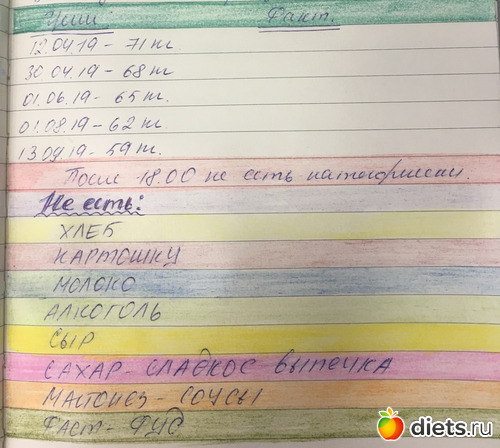 Цели: Факт.
12.04.19 - 71 кг
30.04.19 - 68 кг
01.06.19 - 65 кг.
01.08.19 - 62 кг
13.09.19 - 59 кг.
После 18.00 не есть категорически.
Не есть:
ХЛЕБ
КАРТОШКУ
МОЛОКО
АЛКОГОЛЬ
СЫР
САХАР - СЛАДКОЕ ВЫПЕЧКА
МАЙОНЕЗ - СОУСЫ
ФАСТ - ФУД
diets.ru